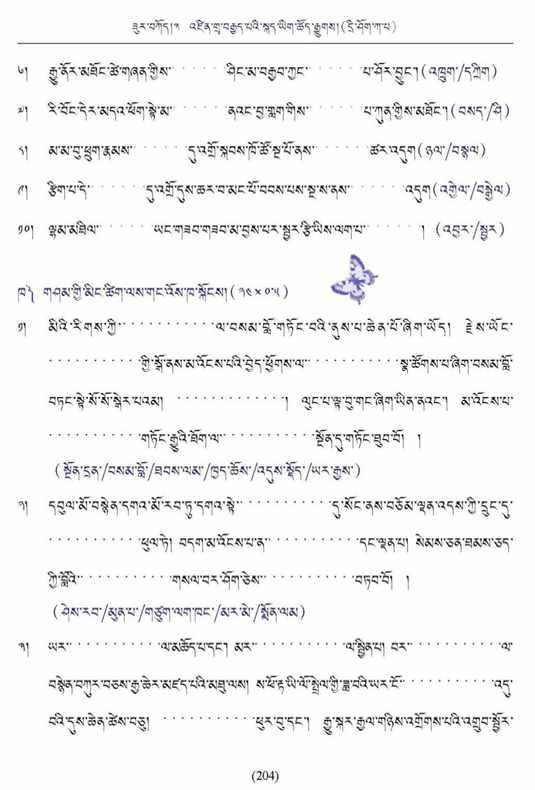 ཟུར་བཀོད། ༣ འཛིན་གྲྭ་བརྒྱད་པའི་སྐད་ཡིག་ཚོད་རྒྱུགས། (དྲི་ཤོག་ཀ་པ)
༦། རྒྱུ་ནོར་མཐོང་ཚེ་གཞན་གྱིས་ · · · · · ཤིང་མ་བརྒྱབ་ཀྱང་ · · · · · པ་ཤོར་བྱུང་། (འཁྲུག་/དཀྲིག)
༧། རི་བོང་དེར་མདའ་ཕོག་སྟེ་མ་ · · · · · ནའང་བྱ་གླག་གིས་ · · · · · པ་ཀུན་གྱིས་མཐོང་། (བསད་/ཤི)
༨། མ་མ་བུ་ཕྲུག་རྣམས་ · · · · · དུ་འགྲོ་སྐབས་ཁོ་ཚོ་སྔ་པོ་ནས་ · · · · · ཚར་འདུག (ཉལ་/བསྙལ)
༩། རྩིག་པ་དེ་ · · · · · དུ་འགྲོ་དུས་ཆར་བ་མང་པོ་བབས་པས་སྔ་ས་ནས་ · · · · · འདུག (འགྱེལ་/བསྒྱེལ)
༡༠། ལྷམ་མཐིལ་ · · · · · ཡང་གཟབ་གཟབ་མ་བྱས་པར་སྦྱར་རྩི་ཡིས་ལག་པ་ · · · · · ། (འབྱར་/སྦྱར)
ཁ༽ གཤམ་གྱི་མིང་ཚིག་ལས་གང་འོས་ཁ་སྐོངས། (༢༤ × ༠.༥)
༡། མིའི་རིགས་ཀྱི་ · · · · · · · · · · ལ་བསམ་བློ་གཏོང་བའི་ནུས་པ་ཆེན་པོ་ཞིག་ཡོད། རྗེས་ཡོང་
· · · · · · · · · · གྱི་སྒོ་ནས་མ་འོངས་པའི་བྱེད་ཕྱོགས་ལ་ · · · · · · · · · · སྣ་ཚོགས་པ་ཞིག་བསམ་བློ་
བཏང་སྟེ་སོ་སོ་སྒེར་པའམ། · · · · · · · · · · ། ལུང་པ་ལྟ་བུ་གང་ཞིག་ཡིན་ནའང་། མ་འོངས་པ་
· · · · · · · · · · གཏོང་རྒྱུའི་ཐོག་ལ་ · · · · · · · · · · སྔོན་དུ་གཏོང་ཐུབ་བོ། །
(སྔོན་དྲན་/བསམ་བློ་/ཐབས་ལམ་/ཁྱད་ཆོས་/འདུས་སྡོད་/ཡར་རྒྱས་)
༢། དབུལ་མོ་བསྟེན་དགའ་མོ་རབ་ཏུ་དགའ་སྟེ་ · · · · · · · · · · དུ་སོང་ནས་བཅོམ་ལྡན་འདས་ཀྱི་དྲུང་དུ་
· · · · · · · · · · ཕུལ་ཏེ། བདག་མ་འོངས་པ་ན་ · · · · · · · · · · དང་ལྡན་པ། སེམས་ཅན་ཐམས་ཅད་
ཀྱི་བློའི་ · · · · · · · · · · གསལ་བར་ཤོག་ཅེས་ · · · · · · · · · · བཏབ་བོ། །
(ཤེས་རབ་/མུན་པ་/གཙུག་ལག་ཁང་/མར་མེ་/སྨོན་ལམ)
༣། ཡར་ · · · · · · · · · · ལ་མཆོད་པ་དང་། མར་ · · · · · · · · · · ལ་སྦྱིན་པ། བར་ · · · · · · · · · · ལ་
བསྙེན་བཀུར་བཅས་རྒྱ་ཆེར་མཛད་པའི་མཐུ་ལས། ས་ཕོ་རྟ་ཡི་ལོ་སྤྲེལ་གྱི་ཟླ་བའི་ཡར་ངོ་ · · · · · · · · · · འདུ་
བའི་དུས་ཆེན་ཚེས་བཅུ། · · · · · · · · · · ཕུར་བུ་དང་། རྒྱུ་སྐར་རྒྱལ་གཉིས་འགྲོགས་པའི་འགྲུབ་སྦྱོར་
(204)